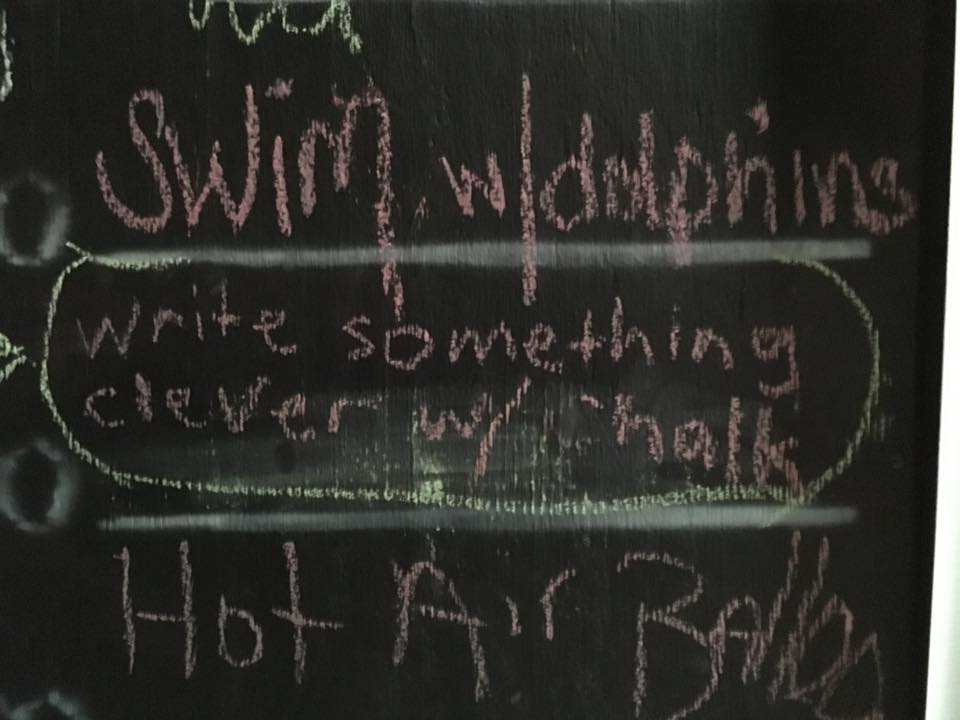 Swim w/dolphins
write something
clever w/ chalk
Hot Air